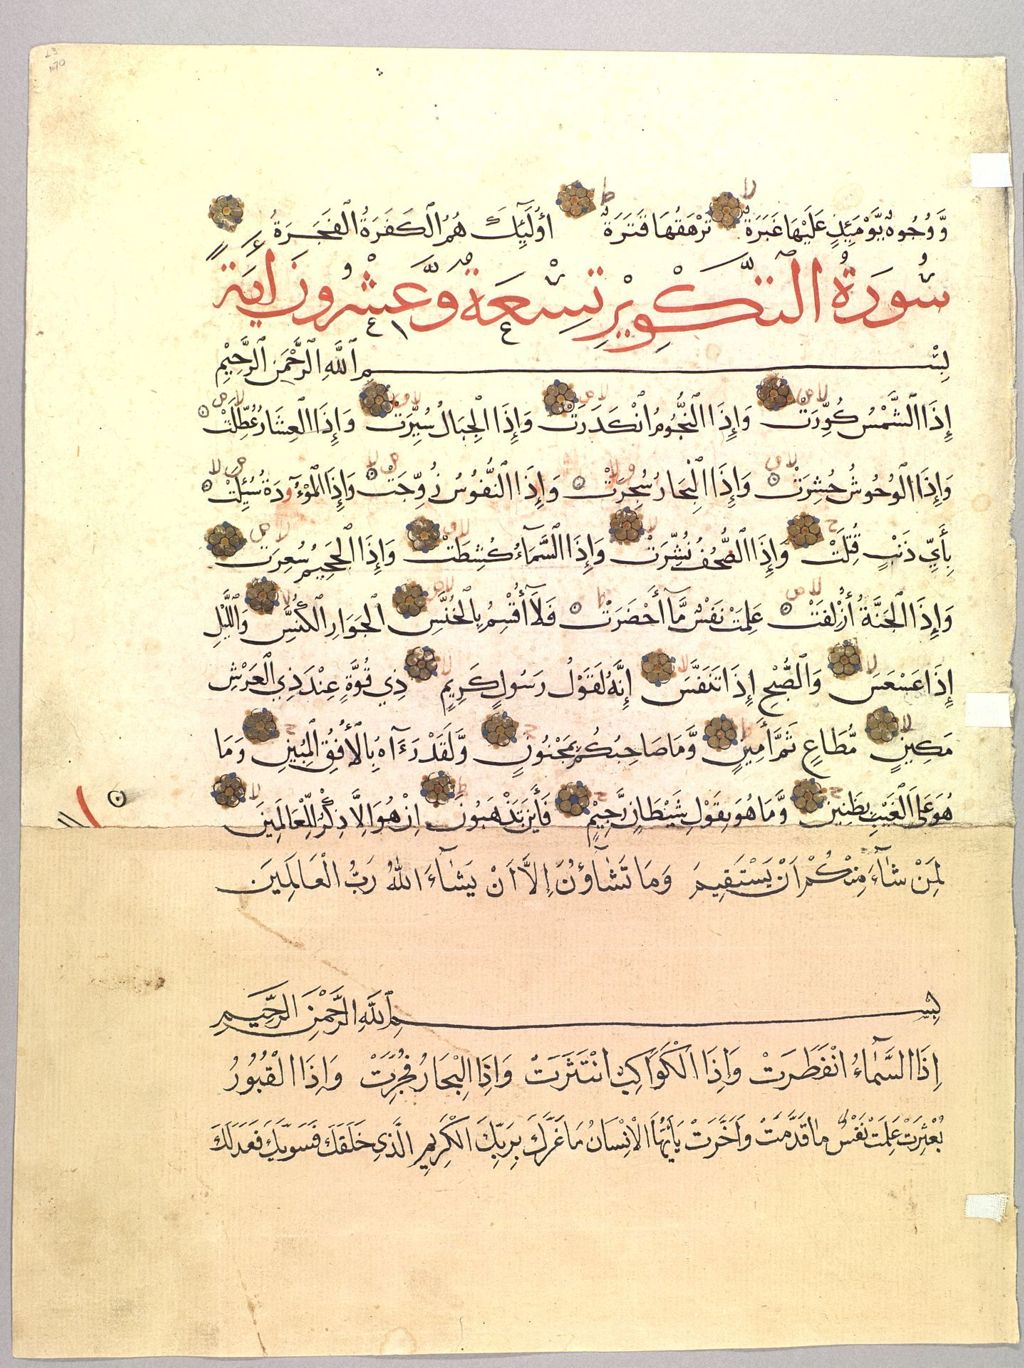 وَّوُجُوهٌ يَّوْمَئِذٍ عَلَيْهَا غَبَرَةٌ تَرْهَقُهَا قَتَرَةٌ اُولَٰٓئِكَ هُمُ الْكَفَرَةُ الْفَجَرَةُ
سُورَةُ التَّكْوِيْرِ تِسْعَةٌ وَّعَشْرُونَ اٰيَةً
بِسْمِ اللهِ الرَّحْمٰنِ الرَّحِيْمِ
إِذَا الشَّمْسُ كُوِّرَتْ وَإِذَا النُّجُومُ انْكَدَرَتْ وَإِذَا الْجِبَالُ سُيِّرَتْ وَإِذَا الْعِشَارُ عُطِّلَتْ
وَإِذَا الْوُحُوشُ حُشِرَتْ وَإِذَا الْبِحَارُ سُجِّرَتْ وَإِذَا النُّفُوسُ زُوِّجَتْ وَإِذَا الْمَوْءُودَةُ سُئِلَتْ
بِأَيِّ ذَنْبٍ قُتِلَتْ وَإِذَا الصُّحُفُ نُشِّرَتْ وَإِذَا السَّمَآءُ كُشِطَتْ وَإِذَا الْجَحِيمُ سُعِّرَتْ
وَإِذَا الْجَنَّةُ أُزْلِفَتْ عَلِمَتْ نَفْسٌ مَّآ أَحْضَرَتْ فَلَآ أُقْسِمُ بِالْخُنَّسِ الْجَوَارِ الْكُنَّسِ وَاللَّيْلِ
إِذَا عَسْعَسَ وَالصُّبْحِ إِذَا تَنَفَّسَ إِنَّهُ لَقَوْلُ رَسُولٍ كَرِيمٍ ذِي قُوَّةٍ عِنْدَ ذِي الْعَرْشِ
مَكِينٍ مُّطَاعٍ ثَمَّ أَمِينٍ وَّمَا صَاحِبُكُمْ بِمَجْنُونٍ وَّلَقَدْ رَءَاهُ بِالْأُفُقِ الْمُبِينِ وَمَا
هُوَ عَلَى الْغَيْبِ بِظَنِينٍ وَّمَا هُوَ بِقَوْلِ شَيْطَانٍ رَّجِيْمٍ فَأَيْنَ تَذْهَبُونَ اِنْ هُوَ اِلَّا ذِكْرٌ لِّلْعَالَمِينَ
لِمَنْ شَآءَ مِنْكُمْ اَنْ يَسْتَقِيمَ وَمَا تَشَآؤُنَ اِلَّا اَنْ يَشَآءَ اللهُ رَبُّ الْعَالَمِينَ
بِسْمِ اللهِ الرَّحْمٰنِ الرَّحِيمِ
اِذَا السَّمَآءُ انْفَطَرَتْ وَاِذَا الْكَوَاكِبُ انْتَثَرَتْ وَاِذَا الْبِحَارُ فُجِّرَتْ وَاِذَا الْقُبُورُ
بُعْثِرَتْ عَلِمَتْ نَفْسٌ مَا قَدَّمَتْ وَاَخَّرَتْ يَآ اَيُّهَا الْاِنْسَانُ مَا غَرَّكَ بِرَبِّكَ الْكَرِيمِ الَّذِي خَلَقَكَ فَسَوّٰيكَ فَعَدَلَكَ